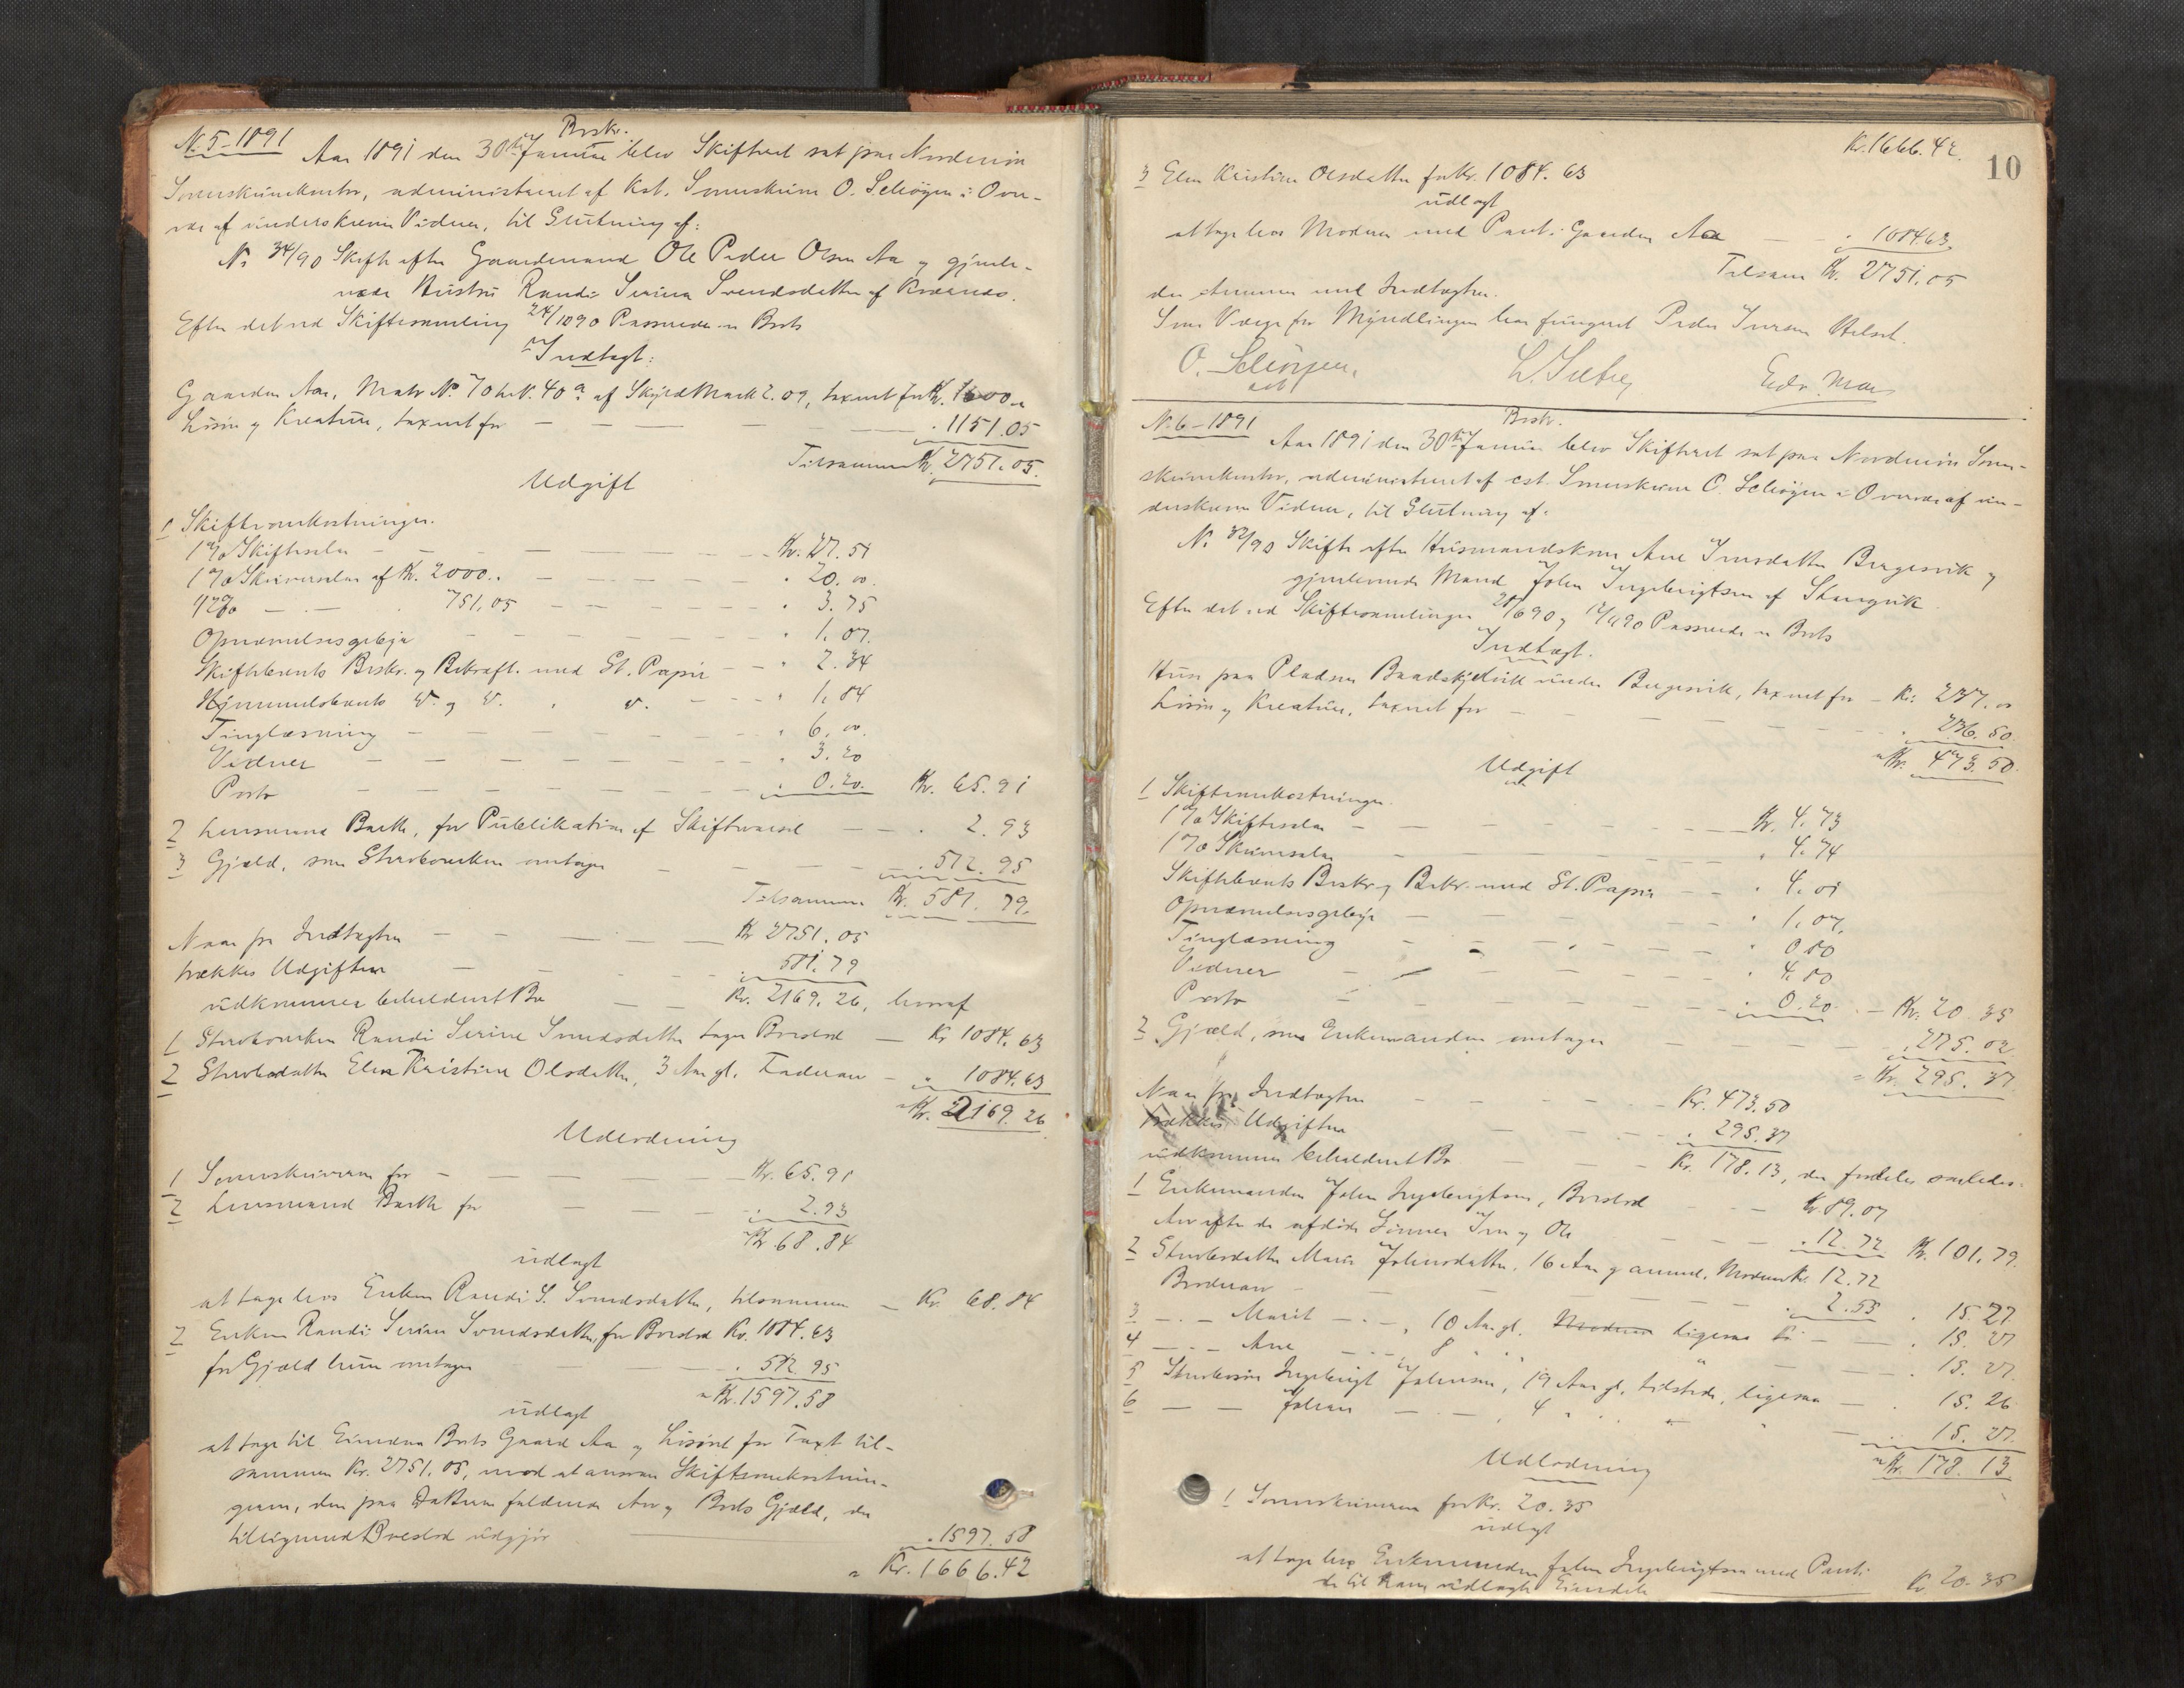 Beskr.
N. 5 - 1891 Aar 1891 den 30te Januar blev Skifteret sat paa Nordmör
Sorenskriverkontor, administreret af Kst. Sorenskriver O. Schöyen i Over-
vær af underskrevne Vidner, til Slutning af:
No 34/90 Skifte efter Gaardmand Ole Peder Olsen Aa og gjenle-
vende Hustru Randi Serine Svendsdatter af
Efter det ved Skiftesamling 24/10 90 Passerede er Boets
Indtægt:
Gaarden Aa, Matr. No 70 Lb.N. 40a af Skyld Mark 2.09, taxeret for Kr. 1600.
Lösöre og Kreature, taxeret for . 1151.05
Tilsammen Kr. 2751.05.
Udgift
1 Skifteomkostninger.
1% Skiftesalær Kr. 27.51
1% Skriversalær af Kr. 2000.. 20.00.
1/2% 751,05 3.75
Opnævnelsesgebyr 1.07.
Skiftebrevets Beskr. og Bekræft. med St. Papir 2.34
Hjemmelsbrevets d. og d. d. 1.84
Tinglæsning 6.00.
Vidner 3.20
Porto 0.20. Kr. 65.91
2 Lensmand Barth, for Publikation af Skiftevarsel 2.93
3 Gjæld, som Stervboenken overtager 512.95
Tilsammen Kr. 581.79.
Naar fra Indtægten Kr 2751.05
trækkes Udgiften 581.79
udkommer beholdent Bo Kr. 2169.26, hvoraf
1 Stervboenken Randi Serine Svendsdatter tager Boeslod Kr 1084.63
2 Stervbodatter Elen Kristine Olsdatter, 3 Aar gl. Faderarv 1084.63
Kr. 2169.26
Udlodning
1 Sorenskriveren for Kr. 65.91
2 Lensmand Barth for 2.93
Kr. 68.84
udlagt
at tage hos Enken Randi S. Svendsdatter, tilsammen Kr. 68.84
2 Enken Randi Serine Svendsdatter, for Boeslod Kr. 1084.63
for Gjæld hun overtager 512.95
Kr. 1597.58
udlagt
at tage til Eiendom Boets Gaard Aa og Lösöre for Taxt til-
sammen Kr. 2751.05, mod at ansvare Skifteomkostnin-
gerne, den paa Datteren faldende Arv og Boets Gjæld, der
tilligemed Boeslod udgjör 1597.58
Kr. 1666.42
Kr. 1666.42.
10
3 Elen Kristine Olsdatter for Kr. 1084.63
udlagt
at tage hos Moderen med Pant i Gaarden Aa 1084.63
Tilsam. Kr. 2751.05
der stemmer med Indtægten.
Som Værge for Myndlingen har fungeret Peder Iversen
O. Schöyen,
cst.
Beskr.
N. 6 - 1891 Aar 1891 den 30te Januar blev Skifteret sat paa Nordmör Soren-
skriverkontor, administreret af cst. Sorenskriver O. Schöyen i Overvær af un-
derskrevne Vidner, til Slutning af:
No 32/90 Skifte efter Husmandskone Ane Iversdatter Bergesvik og
gjenlevende Mand John Ingebrigtsen af Stangvik.
Efter det ved Skiftesamlinger Passerede er Boets
Indtægt.
Huse paa Pladsen under Bergesvik, taxeret for Kr. 237.00
Lösöre og Kreature, taxeret for 236.50.
Kr. 473.50.
Udgift
1 Skifteomkostninger.
1% Skiftesalær Kr. 4.73
1% Skriversalær 4.74
Skiftebrevets Beskr. og Bekr. med St. Papir 4.01
Opnævnelsesgebyr 1.07.
Tinglæsning 0.80
Vidner 4.80
Porto 0.20. Kr. 20.35
2 Gjæld, som Enkemanden overtager 275.02
Kr. 295.37
Naar fra Indtægten Kr. 473.50
trækkes Udgiften 295.37
udkommer beholdent Bo Kr. 178.13, der fordeles saaledes:
1 Enkemanden John Ingebrigtsen, Boeslod Kr. 89.07
Arv efter de afdöde Sönner Iver og Ole 12.72 Kr. 101.79.
2 Stervbodatter Marie Johnsdatter, 16 Aar gammel, Moderarv Kr. 12.72
Broderarv 2.55 15.27
3 Marit 10 Aar gl. ligesaa 15.27
4 Ane 8 15.27.
5 Stervbosön Ingebrigt Johnsen, 19 Aar gl., tilstede, ligesaa 15.26
6 Johan 4 15.27.
Kr. 178.13
Udlodning
1 Sorenskriveren for Kr. 20.35
udlagt
at tage hos Enkemanden John Ingebrigtsen med Pant i
de til ham udlagte Eiendele Kr 20.35